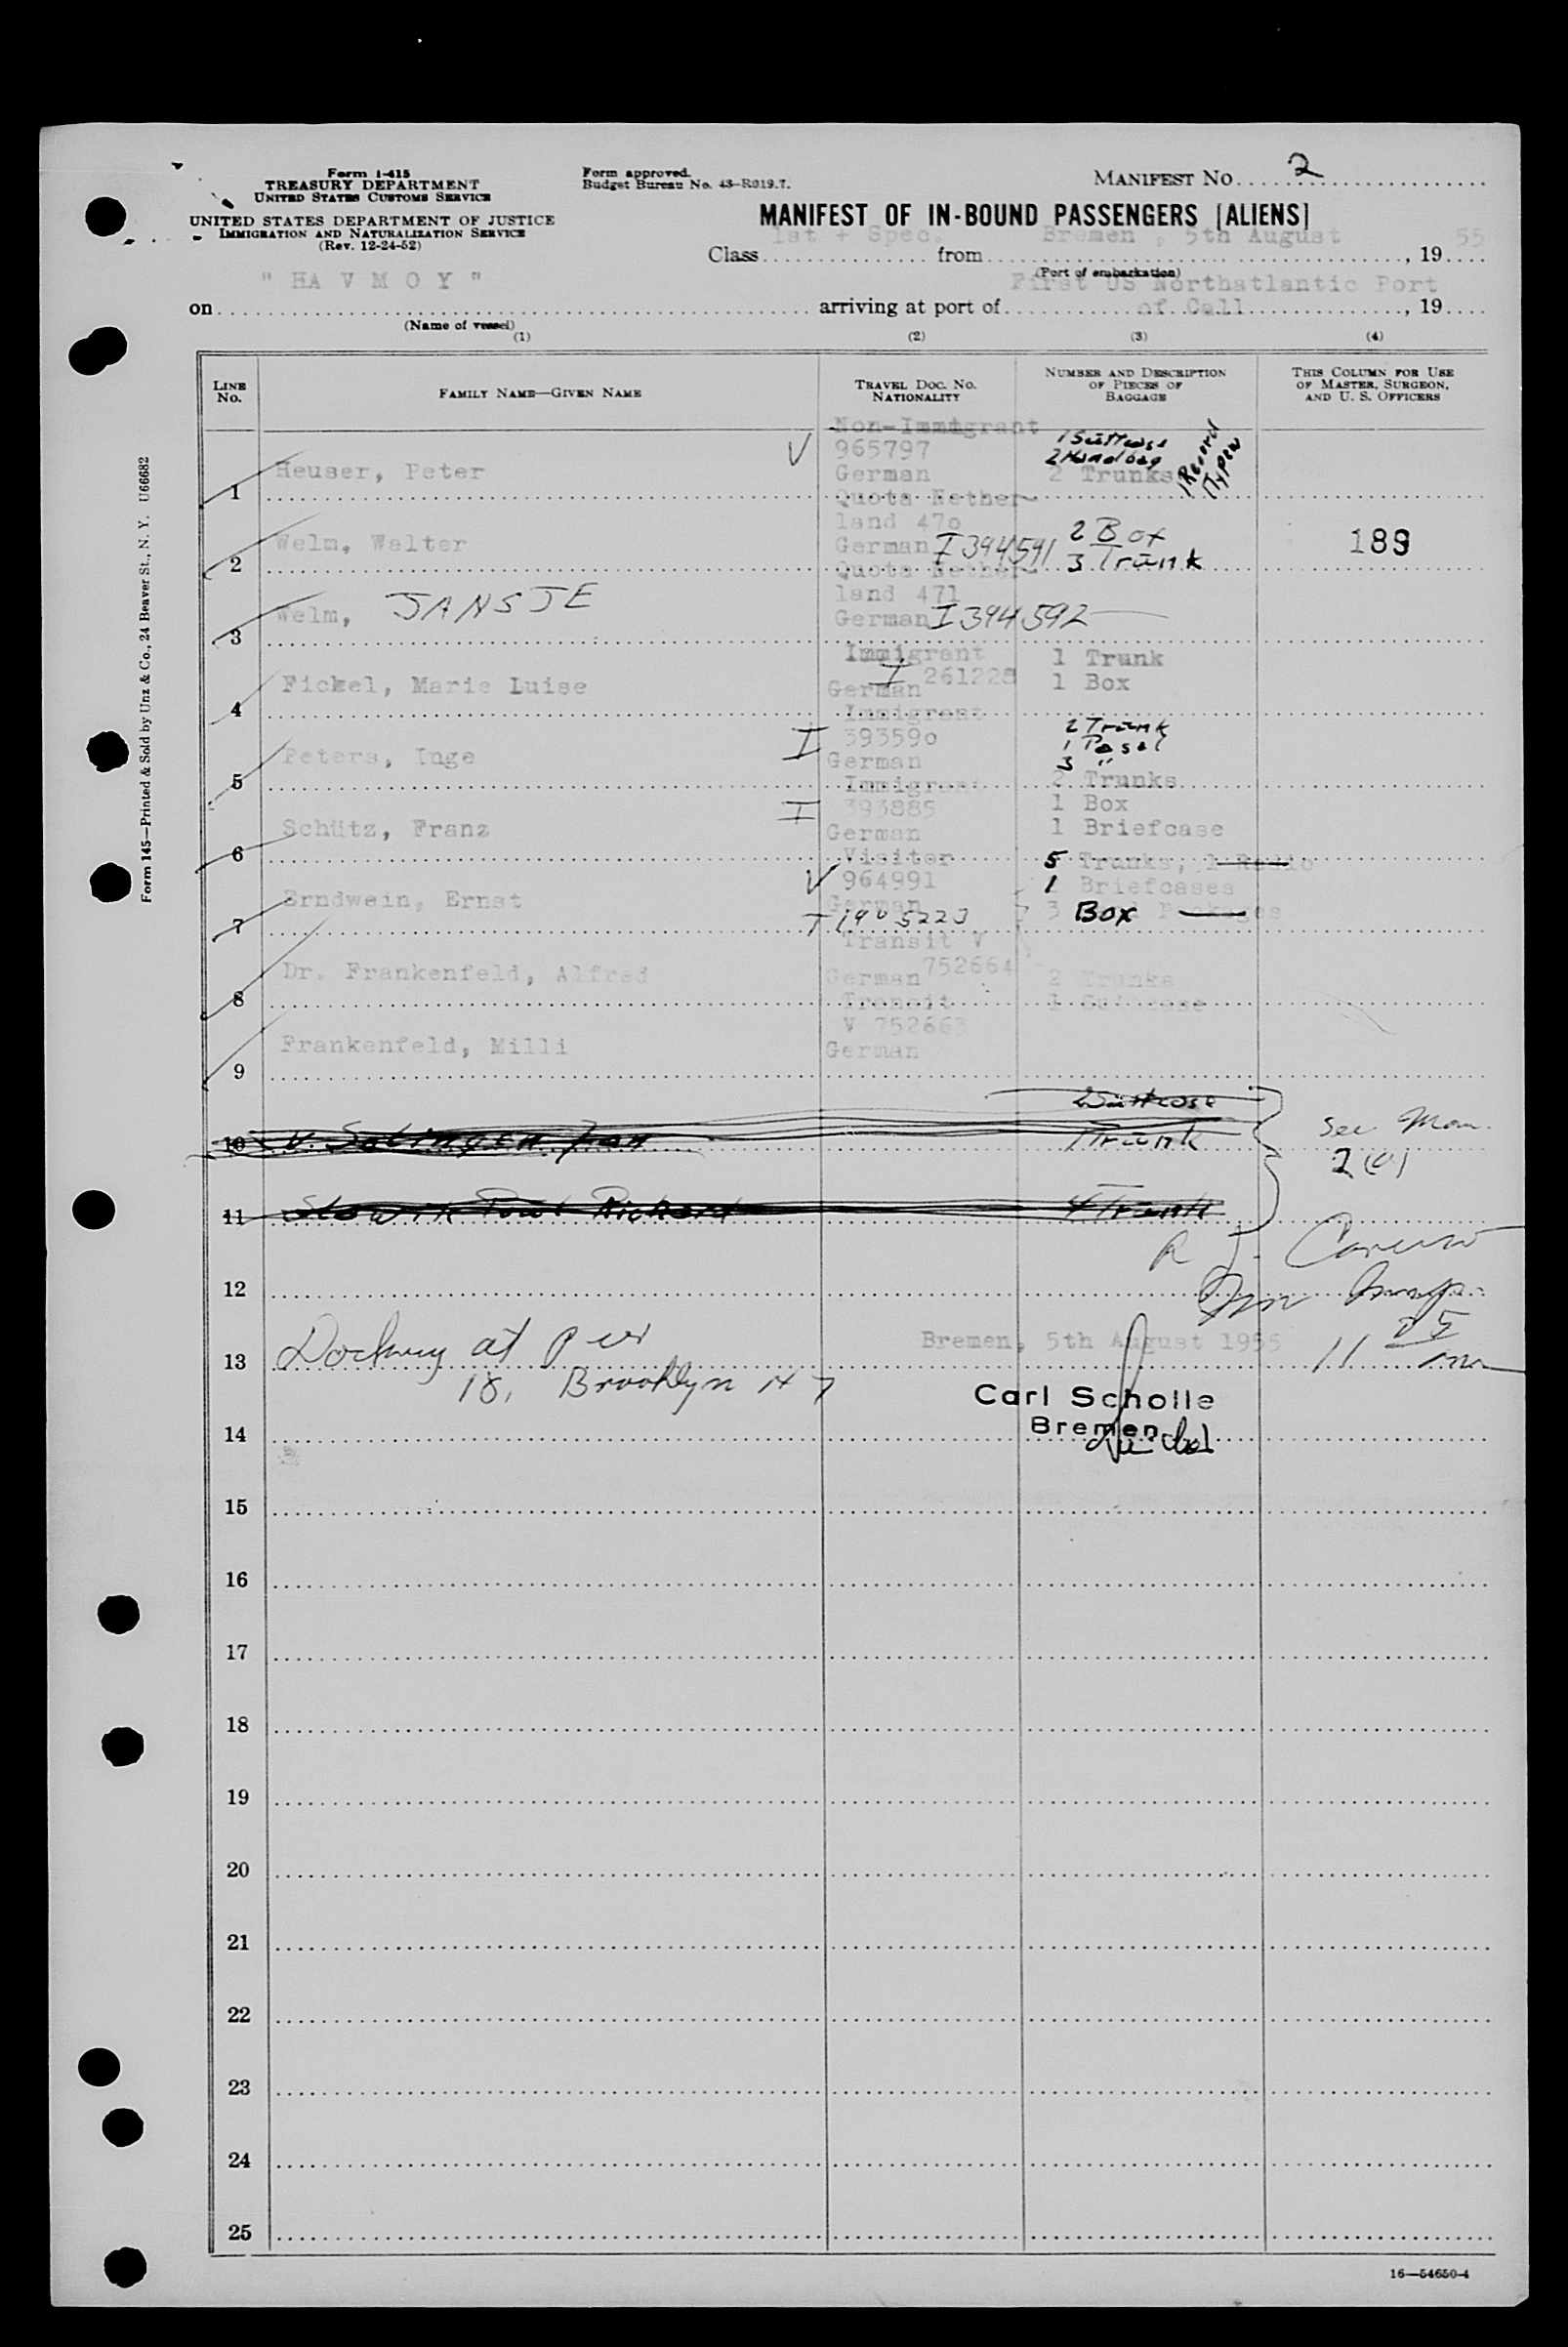 Form I-415
TREASURY DEPARTMENT
UNITED STATES CUSTOMS SERVICE
UNITED STATES DEPARTMENT OF JUSTICE
IMMIGRATION AND NATURALIZATION SERVICE
(Rev. 12-24-52)
Form approved.
Budget Bureau No. 43-R019.7.
MANIFEST NO. 2
MANIFEST OF IN-BOUND PASSENGERS [ALIENS]
Class 1st + Spec. from Bremen, 5th August, 1955
(Port of embarkation)
on " HAVMOY " arriving at port of First US Northatlantic Port of Call, 19
(Name of vessel)
(1) (2) (3) (4)
LINE No.
FAMILY NAME—GIVEN NAME
TRAVEL DOC. NO. NATIONALITY
NUMBER AND DESCRIPTION OF PIECES OF BAGGAGE
THIS COLUMN FOR USE OF MASTER, SURGEON, AND U. S. OFFICERS
1 Heuser, Peter V Non-Immigrant 965797 German 1 Suitcase 2 Handbag 2 Trunks 1 Record 1
2 Welm, Walter Quota Nether-land 47o German I 394591 2 Box 3 Trunk 189
3 Welm, JANSJE Quota Nether-land 471 German I 394592
4 Fickel, Marie Luise Immigrant I 261228 German 1 Trunk 1 Box
5 Peters, Inge I Immigrant 39359o German 2 Trunk 1 3 "
6 Schütz, Franz I Immigrant 393885 German 2 Trunks 1 Box 1 Briefcase
7 Erndwein, Ernst V Visitor 964991 German 5 Trunks, 1 Radio 1 Briefcases 3 Box Packages
8 Dr. Frankenfeld, Alfred Transit V 752664 German 2 Trunks 1 Suitcase
9 Frankenfeld, Milli Transit V 752663 German
10 v. Solingen, 2 Suitcase 1 Trunk See Man. 2
11 Slowik Paul Richard 4 Trunk
R J. Caruso
12
Imm Insp.
13 Docking at Pier Bremen, 5th August 1955 11
18, Brooklyn N Y
Carl Scholle
14 Bremen
15
16
17
18
19
20
21
22
23
24
25
16—54650-4
Form 145—Printed & Sold by Unz & Co., 24 Beaver St., N. Y. U66682